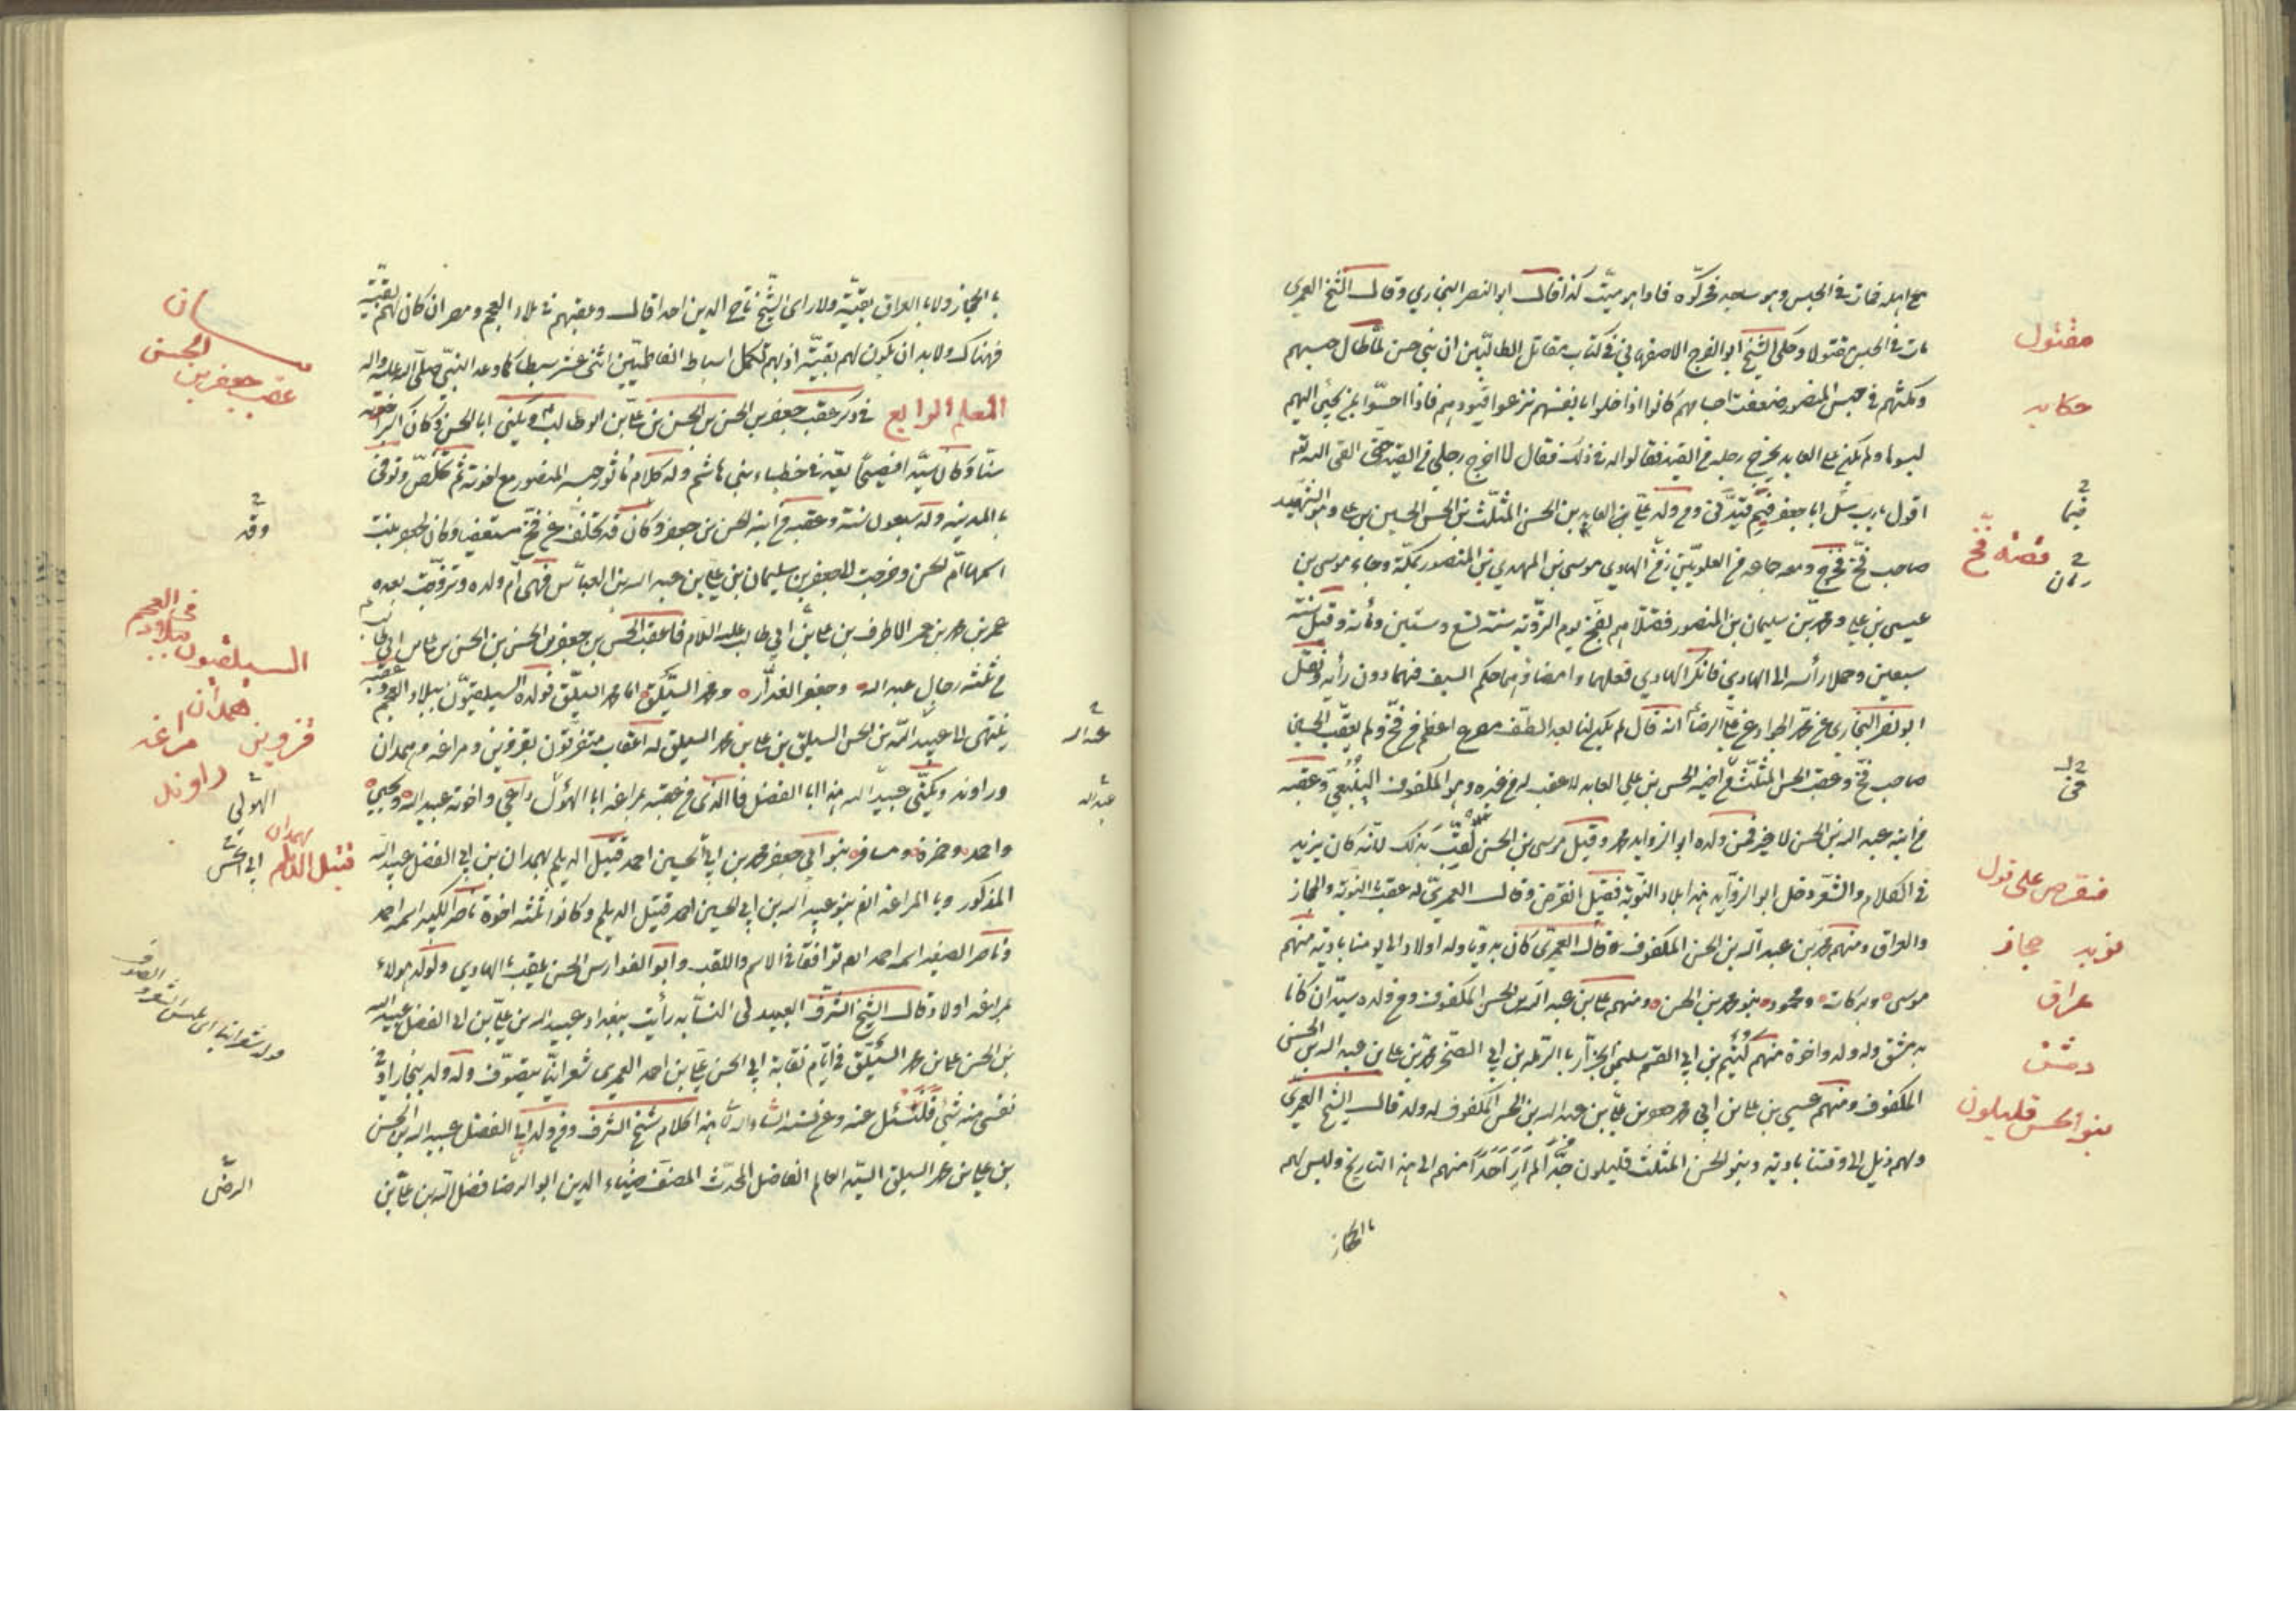 مع اهله فمات في الحبس وهو ساجد فحركوه فاذا هو ميت كذا قال ابو النصر البخاري وقال الشيخ العمري
مات في الحبس مقتولا وحكى الشيخ ابو الفرج الاصفهاني في كتاب مقاتل الطالبيين ان بني حسن لما طال حبسهم
مقتول
في حبس المنصور ضعفت اجسامهم كانوا اذا خلوا بانفسهم نزعوا قيودهم فاذا احسوا بمن يجئ اليهم
حكايه
لبسوها ولم يكن علي العابد يخرج رجله من القيد فقالوا له في ذلك فقال لا اخرج رجلي من القيد حتى القى الله به
اقول يا رب سل ابا جعفر فيم قيدني ومن ولد علي العابد بن الحسن المثلث بن الحسن الحسين بن علي وهو الشهيد
فيما
صاحب فخ خرج ومعه جماعه من العلويين زمن الهادي موسى بن المهدي بن المنصور بمكة وجاء موسى بن
قصه فخ
زمان
عيسى بن علي ومحمد بن سليمان بن المنصور فقتلاهم بفخ يوم التروية سنة تسع وستين ومأة وقيل سنة
سبعين وحملا رأسه الى الهادي فانكر الهادي فعلهما وامضائهما حكم السيف فيهما دون رأيه ونقل
ابو نصر البخاري عن محمد الجواد بن علي الرضا انه قال لم يكن لنا بعد الطف مصرع اعظم من فخ ولم يعقب الحسين
صاحب فخ وعقب الحسن المثلث من اخيه الحسن بن علي العابد لا عقب له من غيره وهو المكفوف الينبعي وعقبه
من ابنه عبد الله بن الحسن لا غير فمن ولده ابو الزوايد محمد وقيل موسى بن الحسن لقب بذلك لانه كان يزيد
في الكلام والشعر دخل ابو الزوايد هذا بلاد النوبة فقيل انقرض وقال العمري له عقب بالنوبة والحجاز
منقرض على قول
والعراق ومنهم محمد بن عبد الله بن الحسن المكفوف قال العمري كان بدويا وله اولاد الى يومنا بادية منهم
نوبه حجاز
موسى وبركات ومحمود بنو محمد بن الحسن ومنهم علي بن عبد الله بن الحسن المكفوف ومن ولده سيدان كانا
عراق
بدمشق وله ولد واخوة منهم بن ابي القسم سليمن الجزار بالرملة بن ابي الصخر محمد بن علي بن عبد الله بن الحسن
دمشق
المكفوف ومنهم عيسى بن علي بن ابي محمد بن علي بن عبد الله بن الحسن المكفوف له ولد قال الشيخ العمري
بنو الحسن قليلون
ولهم ذيل الى وقتنا بادية وبنو الحسن المثلث قليلون جدا لم أر احدا منهم الى هذا التاريخ وليس لهم
بالحجاز
بالحجاز ولا بالعراق بقية ولا رأى الشيخ تاج الدين احدا قال وبعضهم في بلاد العجم ومصر ان كان لهم بقية
فهناك ولا بد ان يكون لهم بقية اذ بهم تكمل اسباط الفاطميين اثنى عشر سبطا كما وعد النبي صلى الله عليه واله
عقب جعفر بن الحسن
المعلم الرابع في ذكر عقب جعفر بن الحسن بن الحسن بن علي بن ابو طالب ويكنى ابا الحسن وكان اكبر اخوته
سنا وكان سيدا فصيحا يعد في خطباء بني هاشم وله كلام مأثور حبسه المنصور مع اخوته ثم تخلص وتوفى
بالمدينه وله سبعون سنة وعقبه من ابنه الحسن بن جعفر وكان قد تخلف عن فخ مستعفيا وكان لجعفر بنت
وقد
اسمها ام الحسن وخرجت الى جعفر بن سليمان بن علي بن عبد الله بن العباس فهي ام ولده وتزوجت بعده
عمر بن محمد بن عمر الاطرف بن علي بن ابي طالب عليه السلام فاعقب الحسن بن جعفر بن الحسن بن الحسن بن علي بن ابي طالب
السيلقيون ببلاد العجم
من ثلثه رجال عبد الله وجعفر الغدار ومحمد السيلق اما محمد السيلق فولده السيلقيون ببلاد العجم وعقبه
ينتهى الى عبيد الله بن الحسن السيلق بن علي بن محمد السيلق له اعقاب متفرقون بقزوين ومراغه وهمدان
همدان
قزوين مراغه
عبد الله
وراوند ويكنى عبيد الله هذا ابا الفضل فالذى من عقبه بمراغه ابا الهول داعي واخوته عبيد الله ويحيى
راوند
الهولى
عبد الله
واحمد وحمزه ومسافر بنو ابي جعفر محمد بن ابي الحسين احمد قتيل الديلم بهمدان بن ابي الفضل عبيد الله
بهمدان
قتيل الديلم
ابي الحسن
المذكور وبالمراغه ايضا بنو عبيد الله بن ابي الحسين احمد قتيل الديلم وكانوا ثلثه اخوة ناصر الكبير اسمه احمد
وناصر الصغير اسمه احمد ايضا توافقا في الاسم واللقب وابو الفوارس الحسن يلقب الهادي ولولد هولاء
بمراغه اولاد قال الشيخ الشرف العبيدلى النسابه رأيت ببغداد عبيد الله بن علي بن ابي الفضل عبيد الله
بن الحسن علي بن محمد السيلق في ايام نقابة ابي الحسن علي بن احمد العمري شعرانيا يتصوف وله ولد ببخارا وفي
نفسى منه شئ قلت سئل عنه وعن نسبه انشاء الله هذا كلام شيخ الشرف ومن ولد ابي الفضل عبيد الله بن الحسن
بن علي بن محمد السيلق السيد العالم الفاضل المحدث المصنف ضياء الدين ابو الرضا فضل الله بن علي بن
الرضى